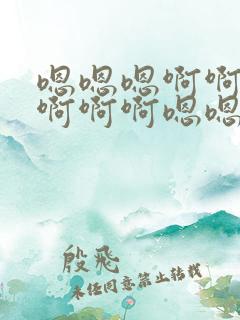 嗯嗯嗯啊啊
啊啊啊嗯嗯
殷飛
未经同意禁止转载